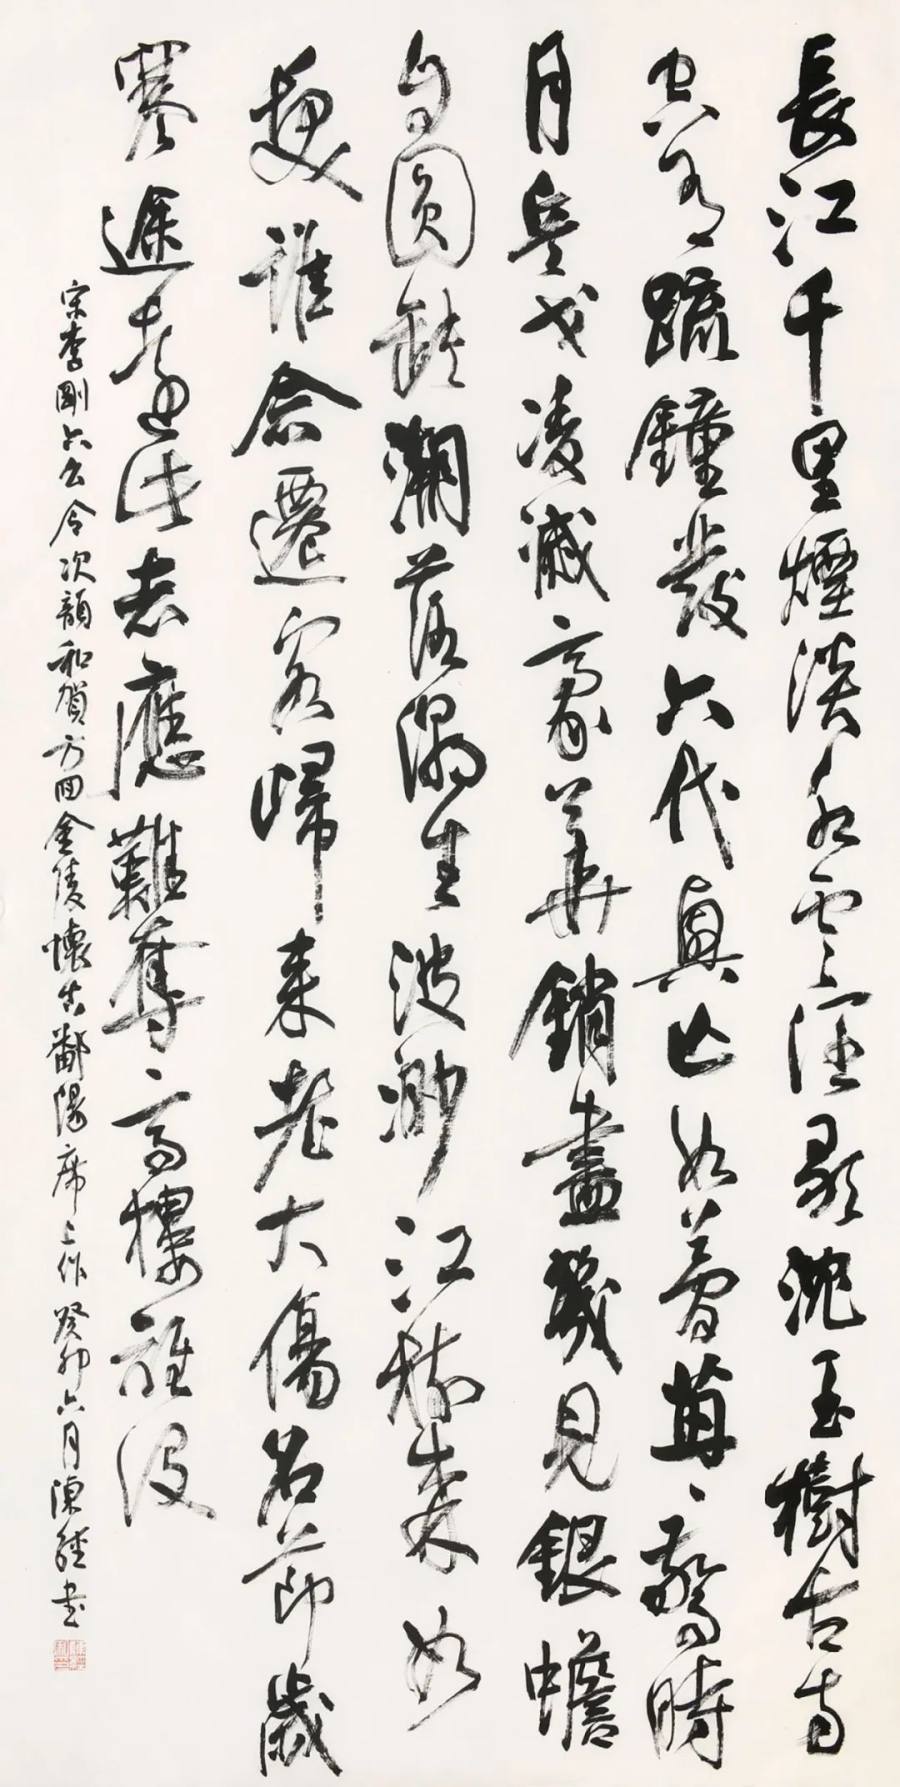 長江千里煙淡水雲濶歌沈玉樹古寺
空有疏鐘發六代興亡如夢苒々驚時
月兵戈凌滅豪華銷盡幾見銀蟾
自圓缺潮落潮生波渺江樹森如
髮誰念遷客歸來老大傷名節歲
寒途遠此志應難奪高樓誰設
宋李剛六么令次韻和賀方回金陵懷古鄱陽席上作癸卯六月陳經書